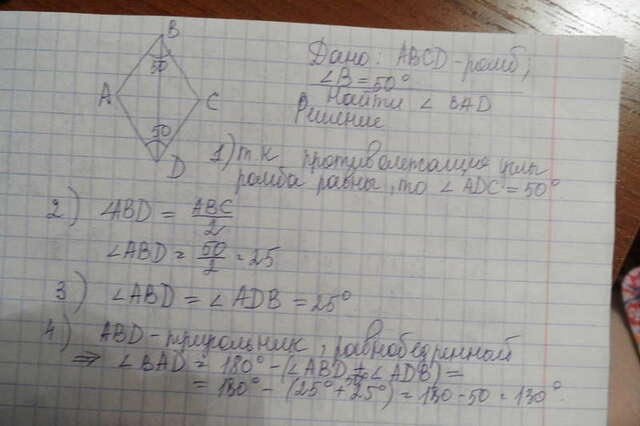 B
50
A
C
50
D
Дано: ABCD - ромб,
∠B = 50°
Найти ∠BAD
Решение
1) т.к противолежащие углы
ромба равны, то ∠ADC = 50°
2) ∠ABD = ABC/2
∠ABD = 50/2 = 25
3) ∠ABD = ∠ADB = 25°
4) ABD - треугольник, равнобедренный
⇒ ∠BAD = 180° - (∠ABD + ∠ADB) =
= 180° - (25° + 25°) = 180 - 50 = 130°.